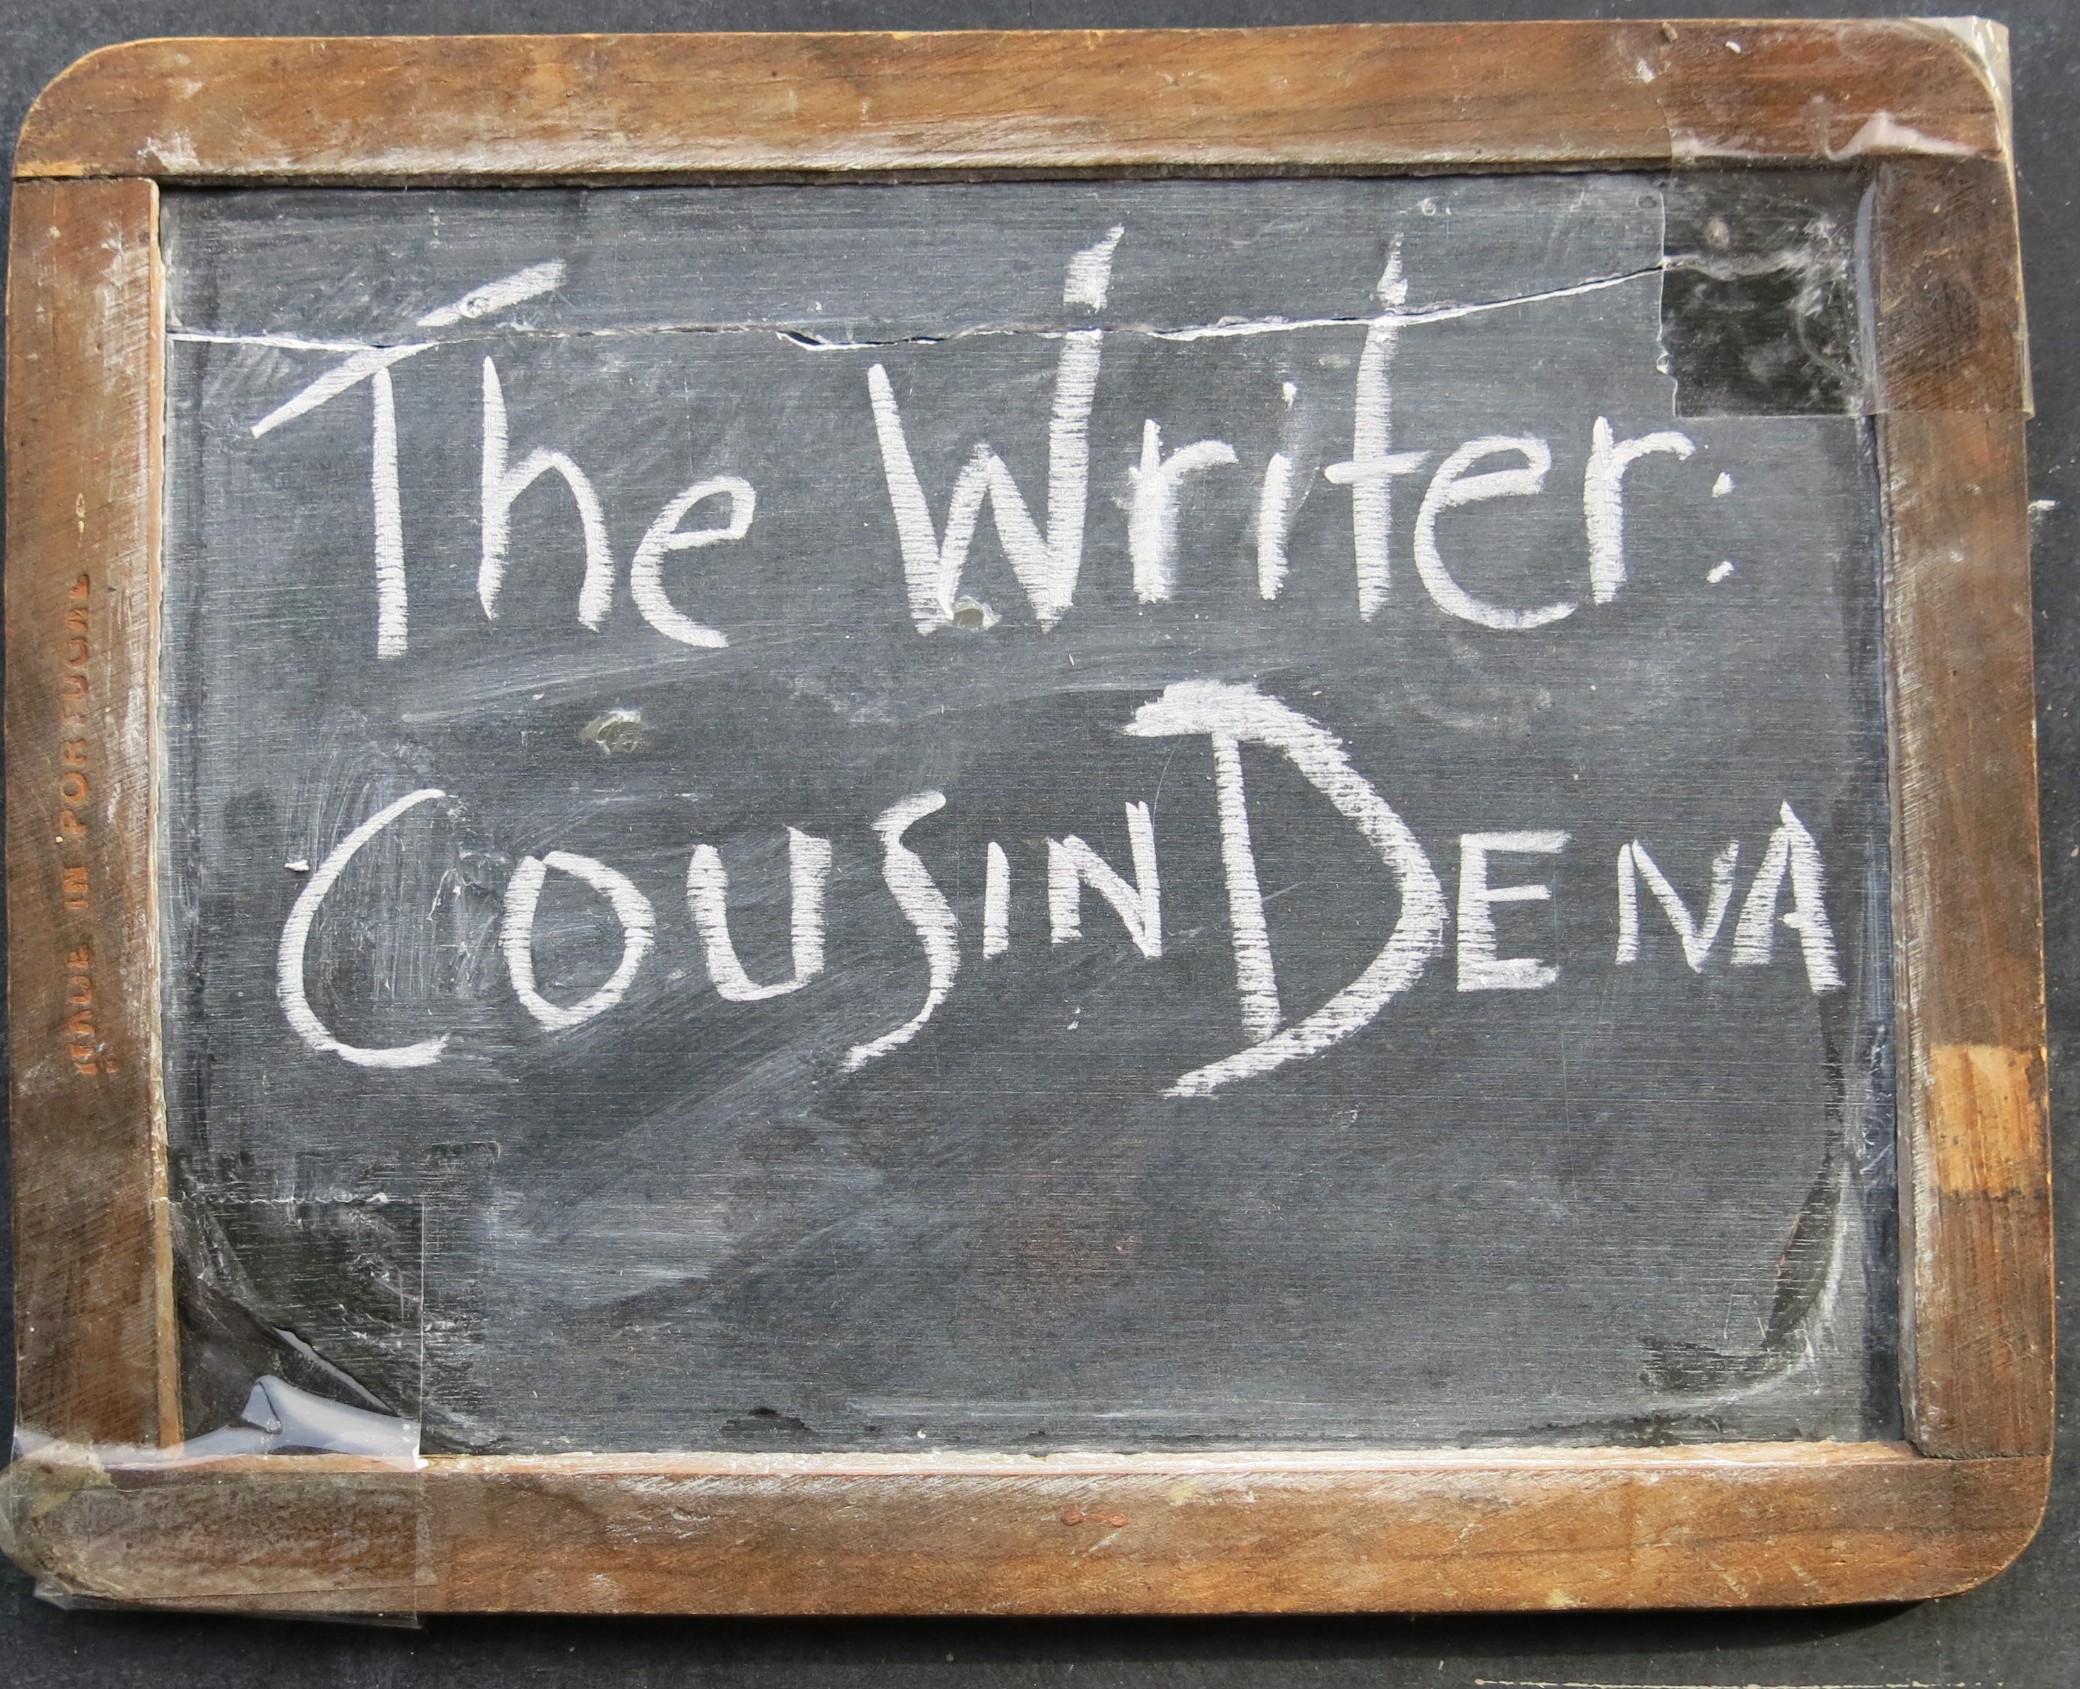 The Writer:
COUSIN DENA
MADE IN PORTUGAL